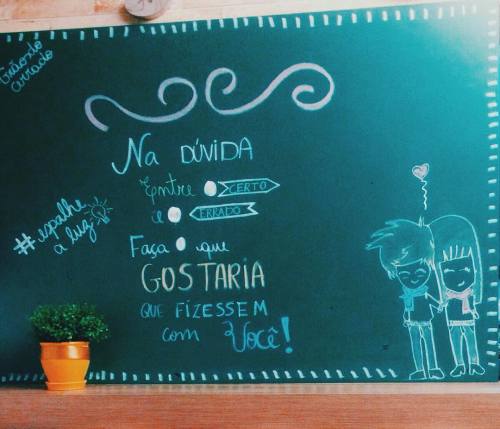 Grão do
cerrado
Na DÚVIDA
Entre o CERTO
e o ERRADO
Faça o que
GOSTARIA
QUE FIZESSEM
com Você!
#espalhe
a luz